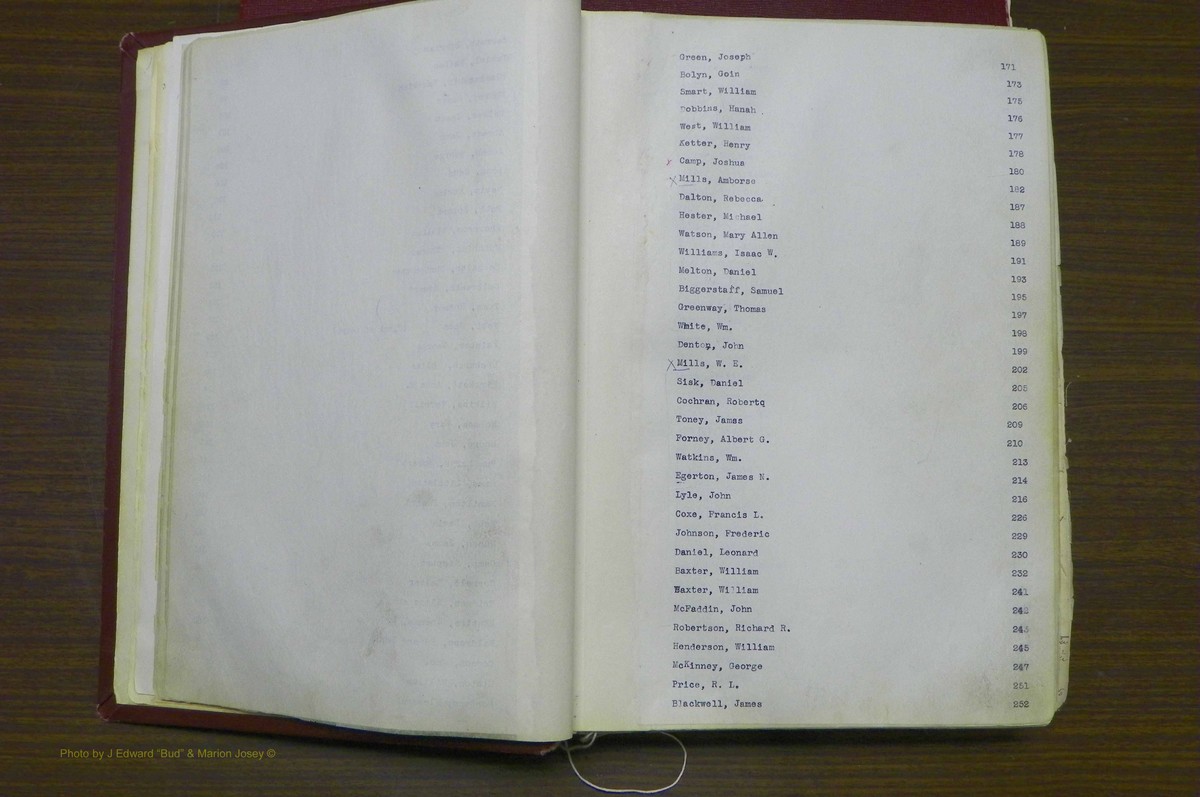 Green, Joseph 171
Bolyn, Goin 173
Smart, William 175
Dobbins, Hanah 176
West, William 177
Ketter, Henry 178
x Camp, Joshua 180
X Mills, Amborse 182
Dalton, Rebecca 187
Hester, Michael 188
Watson, Mary Allen 189
Williams, Isaac W. 191
Melton, Daniel 193
Biggerstaff, Samuel 195
Greenway, Thomas 197
White, Wm. 198
Denton, John 199
X Mills, W. E. 202
Sisk, Daniel 205
Cochran, Robertq 206
Toney, James 209
Forney, Albert G. 210
Watkins, Wm. 213
Egerton, James N. 214
Lyle, John 216
Coxe, Francis L. 226
Johnson, Frederic 229
Daniel, Leonard 230
Baxter, William 232
Waxter, William 241
McFaddin, John 242
Robertson, Richard R. 243
Henderson, William 245
McKinney, George 247
Price, R. L. 251
Blackwell, James 252
Photo by J Edward "Bud" & Marion Josey ©